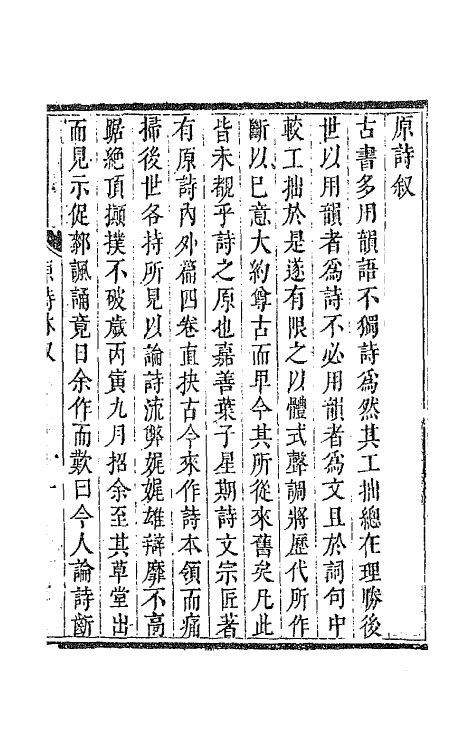 原詩叙
古書多用韻語不獨詩爲然其工拙總在理勝後
世以用韻者爲詩不必用韻者爲文且於詞句中
較工拙於是遂有限之以體式聲調將歷代所作
斷以已意大約尊古而卑今其所從來舊矣凡此
皆未覩乎詩之原也嘉善葉子星期詩文宗匠著
有原詩內外篇四卷直抉古今來作詩本領而痛
掃後世各持所見以論詩流弊娓娓雄辯靡不高
踞絶頂擷撲不破歲丙寅九月招余至其草堂出
而見示促郲諷誦竟日余作而歎曰今人論詩斷
原詩 叙 一